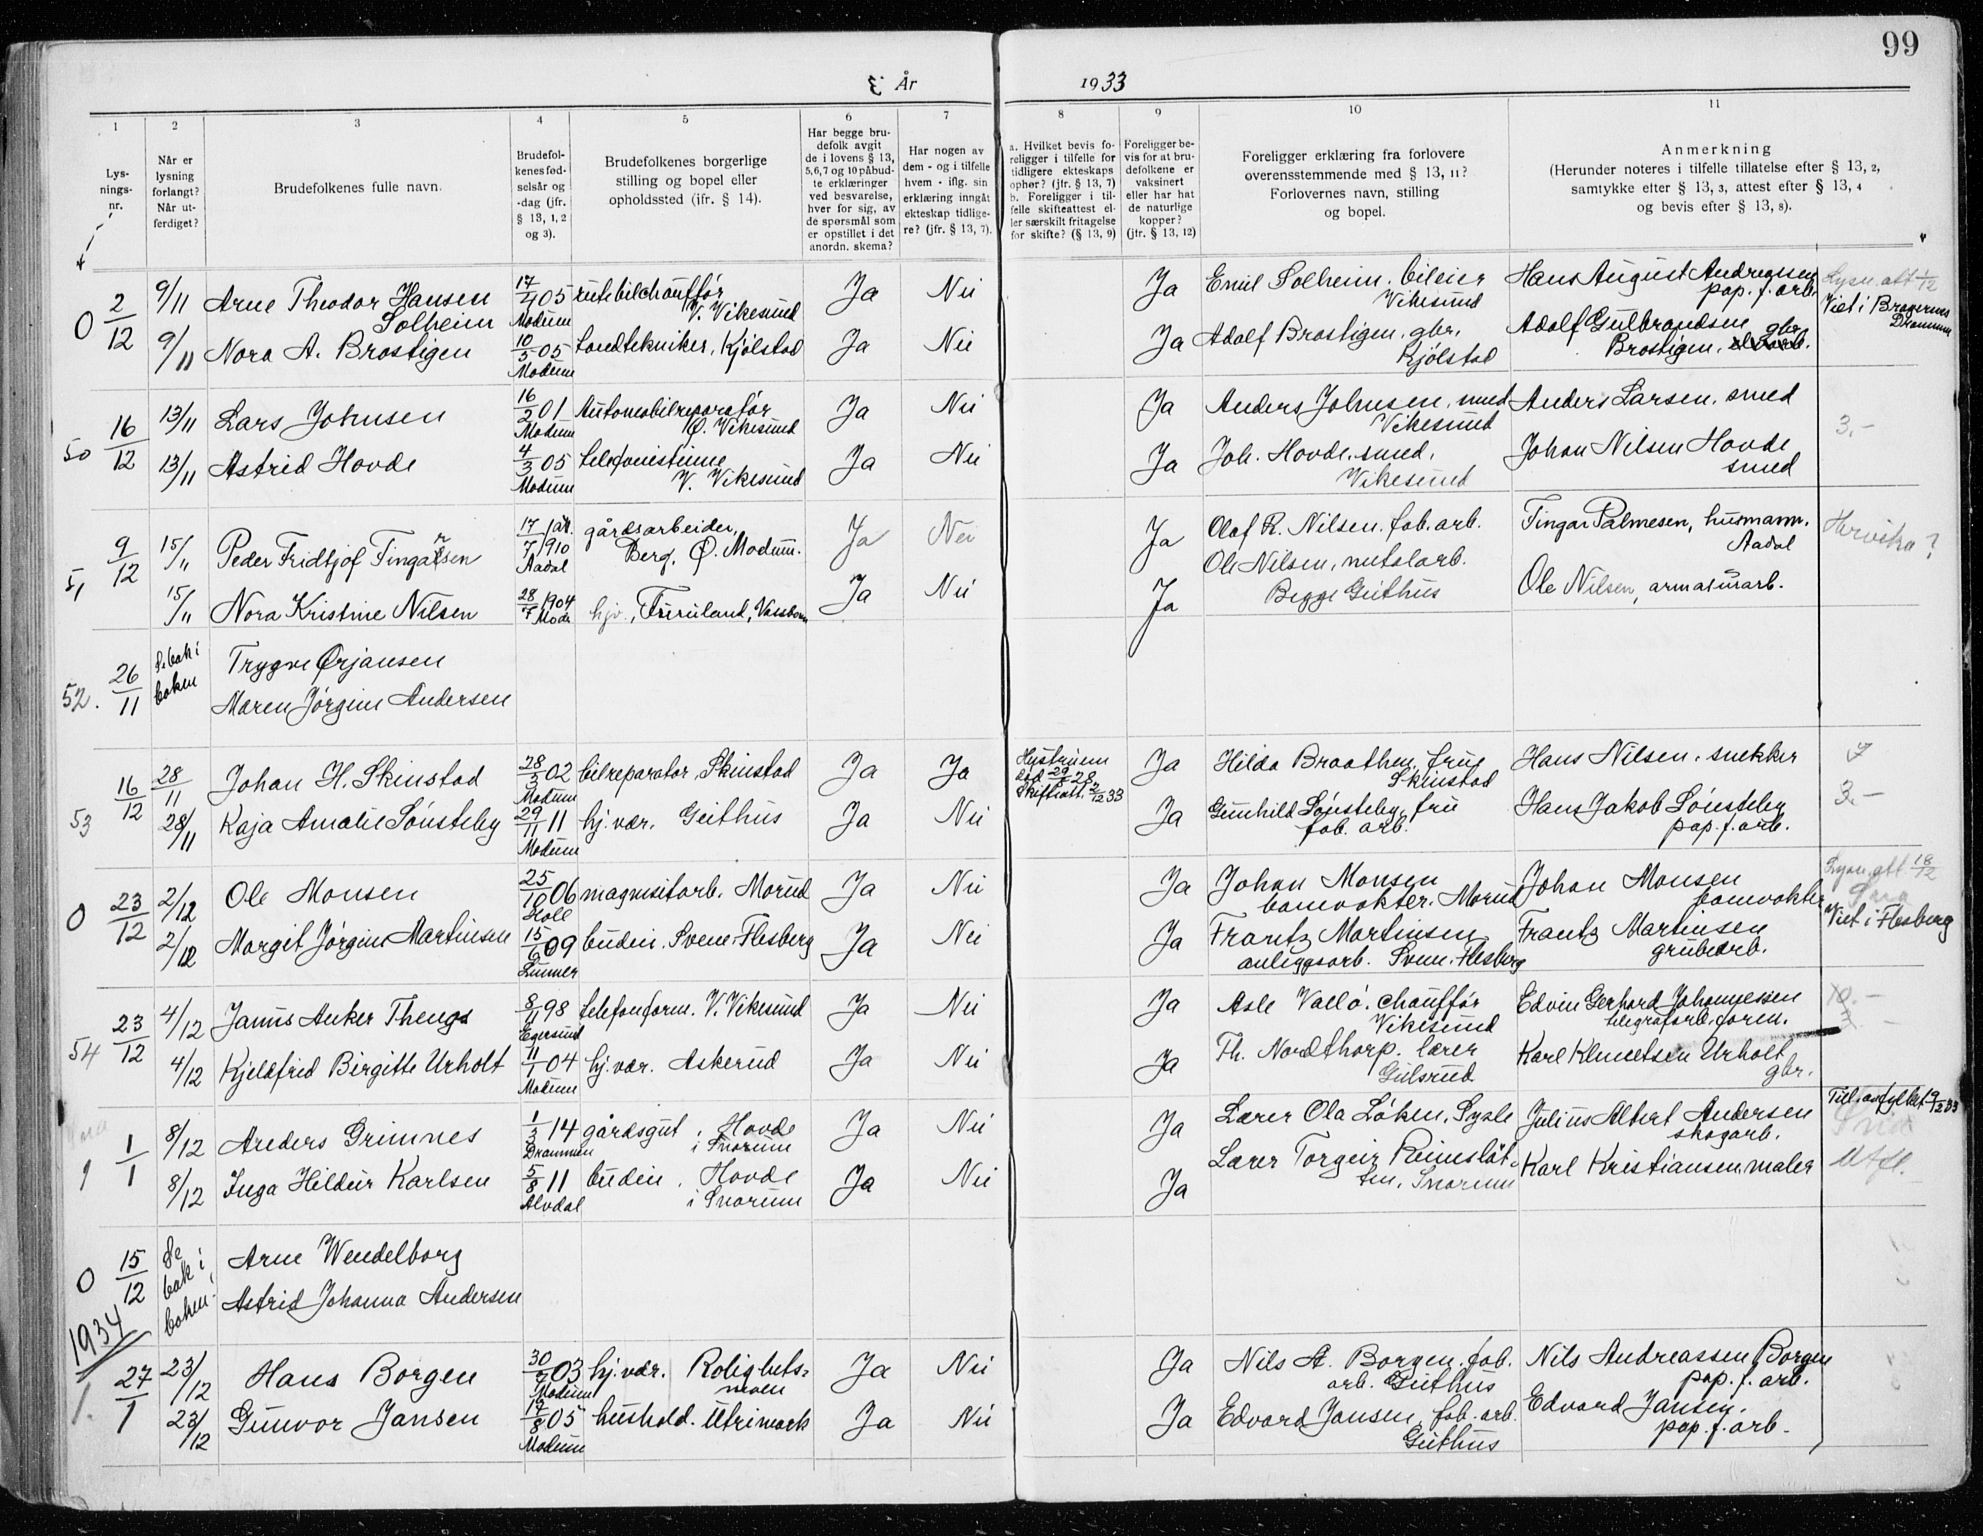 99
År 1933
1 2 3 4 5 6 7 8 9 10 11
Lys-
nings-
nr.
Når er
lysning
forlangt?
Når ut-
ferdiget?
Brudefolkenes fulle navn.
Brudefol-
kenes fød-
selsår og
-dag (jfr.
§ 13, 1, 2
og 3).
Brudefolkenes borgerlige
stilling og bopel eller
opholdssted (jfr. § 14).
Har begge bru-
defolk avgit
de i lovens § 13,
5,6,7 og 10 påbud-
te erklæringer
ved besvarelse,
hver for sig, av
de spørsmål som
er opstillet i det
anordn. skema?
Har nogen av
dem - og i tilfelle
hvem - iflg. sin
erklæring inngåt
ekteskap tidlige-
re? (jfr. § 13, 7).
a. Hvilket bevis fo-
religger i tilfelle for
tidligere ekteskaps
ophør? (jfr. § 13, 7)
b. Foreligger i til-
felle skifteattest el-
ler særskilt fritagelse
for skifte? (§ 13, 9)
Foreligger be-
vis for at bru-
defolkene er
vaksinert
eller har hat
de naturlige
kopper?
(jfr. § 13, 12)
Foreligger erklæring fra forlovere
overensstemmende med § 13, 11?
Forlovernes navn, stilling
og bopel.
Anmerkning
(Herunder noteres i tilfelle tillatelse efter § 13, 2,
samtykke efter § 13, 3, attest efter § 13, 4
og bevis efter § 13, 8).
0 2/12 9/11 Arne Theodor Hansen Solheim 17/4 05 Modum rutebilchauffør V. Vikesund Ja Nei Ja Emil Solheim, bileier Vikesund Hans August Andreassen pap. f. arb. Lysn. att 1/12
9/11 Nora A. Brostigen 10/5 05 Modum tandtekniker, Kjølstad Ja Nei Ja Adolf Brostigen, gbr. Kjölstad Adolf Gulbrandsen Brostigen, gbr. Viet i Bragernes Drammen
50 16/12 13/11 Lars Johnsen 16/2 01 Modum Automobilreparatør Ø. Vikesund Ja Nei Ja Anders Johnsen, smed Vikesund Anders Larsen, smed 3.-
13/11 Astrid Hovde 4/3 05 Modum telefonistinne V. Vikesund Ja Nei Ja Joh. Hovde, smed, Vikesund Johan Nilsen Hovde smed
51 9/12 15/11 Peder Fridtjof Tingarsen 17/7 1910 Aadal gårdsarbeider, Berg, Ø. Modum. Ja Nei Ja Olaf R. Nilsen, fab. arb. Tingar Palmesen, husmann. Aadal
15/11 Nora Kristine Nilsen 28/7 1904 Mod. hjv., Furuland, Vassbonn Ja Nei Ja Ole Nilsen, metalarb. Begge Geithus Ole Nilsen, armaturarb.
52. 26/11 Se bak i boken Trygve Ørjansen
Maren Jørgine Andersen
53 16/12 28/11 Johan H. Skinstad 28/3 02 Modum bilreparatør, Skinstad Ja Ja Hustruen död 29/5 28 Skifteatt. 2/12 33 Ja Hilda Braathen, frue Skinstad Hans Nilsen, snekker
28/11 Kaja Amalie Sønsteby 29/11 11 Modum hj. vær. Geithus Ja Nei Ja Gunhild Sønsteby, fru fab. arb. Hans Jakob Sønsteby pap. f. arb. 3.-
0 23/12 2/12 Ole Monsen 25/10 06 Holl magnesitarb. Morud Ja Nei Ja Johan Monsen banevokter. Morud Johan Monsen banevokter Lysn. att. 18/12
2/12 Margit Jørgine Martinsen 15/6 09 Lunner budeie. Svene, Flesberg Ja Nei Ja Frantz Martinsen anleggsarb. Svene. Flesberg Frantz Martinsen grubearb. Viet i Flesberg
54 23/12 4/12 Janus Anker Thengs 8/11 98 Egersund telefonform. V. Vikesund Ja Nei Ja Asle Vallö, chauffør Vikesund Edvin Gerhard Johannessen telegrafarb. form. 10.-
4/12 Kjeldfrid Birgitte Urholt 11/1 04 Modum hj. vær. Askerud Ja Nei Ja Th. Nordthorp. lærer Gulsrud Karl Klemetsen Urholt gbr.
1 1/1 8/12 Anders Grimnes 1/3 14 Drammen gårdsgut, Hovde i Snarum Ja Nei Ja Lærer Ola Løken, Sysle Julius Albert Andersen skogarb.
8/12 Inga Hildur Karlsen 5/8 11 Alvdal budeie, Hovde i Snarum Ja Nei Ja Lærer Torgeir Reinsløtten, Snarum Karl Kristiansen, maler
0 15/12 Se bak i boken! Arne Wendelborg
Astrid Johanna Andersen
1934
1. 27/1 23/12 Hans Borgen Modum hj. vær. Rolighets- moen Ja Nei Ja Nils A. Borgen, fab. arb. Geithus Nils Andreassen Borgen pap. f. arb.
23/12 Gunvor Jansen 05 Modum hushold. Utrimark Ja Nei Ja Edvard Jansen, fab. arb. Geithus Edvard Jansen, pap. f. arb.